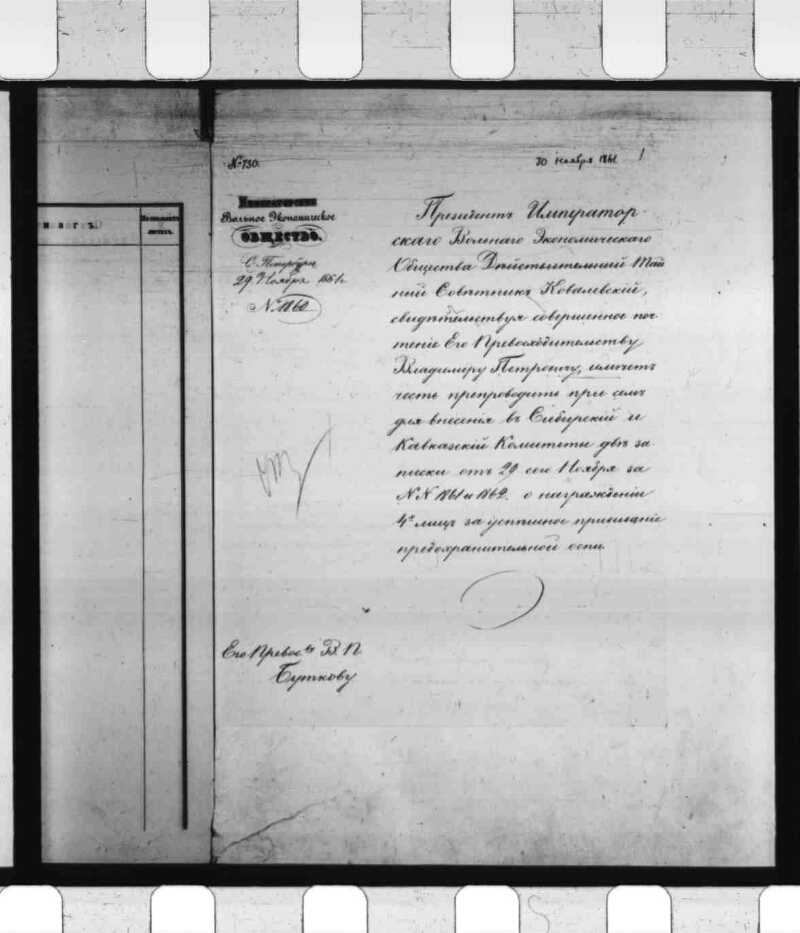 № 730.
30 ноября 1861.
1
Императорское
Вольное Экономическое
ОБЩЕСТВО.
С. Петербургъ
29 Ноября 1861 г.
№ 1860
Президентъ Император-
скаго Вольнаго Экономическаго
Общества Дѣйствительный Тай
ный Совѣтникъ Ковалевскій,
свидѣтельствуя совершенное поч
теніе Его Превосходительству
Владиміру Петровичу, имѣетъ
честь препроводить при семъ
для внесенія въ Сибирскій и
Кавказскій Комитеты двѣ за-
писки отъ 29 сего Ноября за
№№ 1861 и 1862 о награжденіи
4х лицъ за успѣшное прививаніе
предохранительной оспы
Его Превосхв В. П.
Буткову
листахъ.